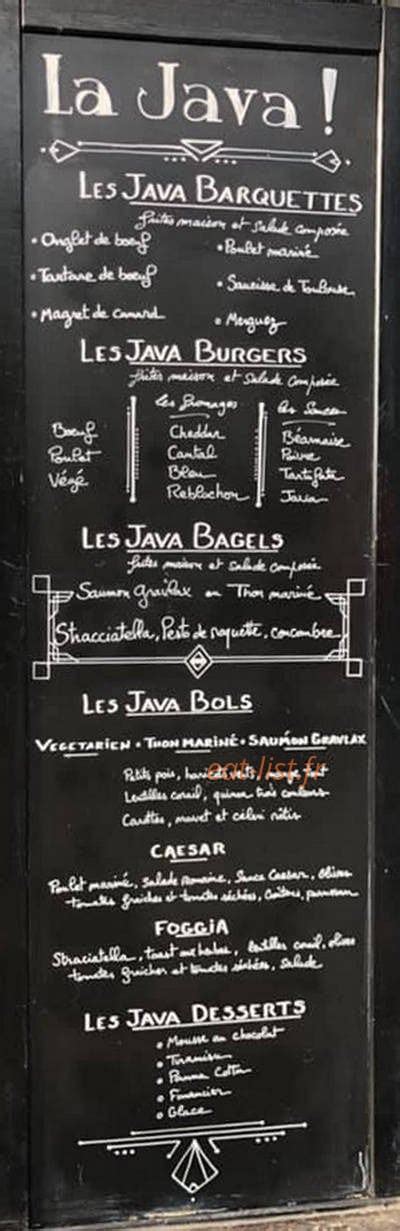 La Java !
Les Java Barquettes
faites maison et salade composée
• Onglet de boeuf
• Poulet mariné
• Tartare de boeuf
• Saucisse de Toulouse
• Magret de canard
• Merguez
Les Java Burgers
faites maison et salade composée
Les fromages
Les Sauces
Boeuf
Cheddar
Béarnaise
Poulet
Cantal
Poivre
Végé
Bleu
Tartufata
Reblochon
Java
Les Java Bagels
faites maison et salade composée
Saumon gravlax ou Thon mariné
Stracciatella, Pesto de roquette, concombre
Les Java Bols
Vegetarien • Thon mariné • Saumon Gravlax
Petits pois, haricots verts,
eat-list.fr
Lentilles corail, quinoa trois couleurs
Carottes, navet et céleri rôtis
Caesar
Poulet mariné, Salade Romaine, Sauce Caesar, olives
tomates fraiches et tomates séchées, Croûtons, parmesan
Foggia
Straciatella, toast aux herbes, lentilles corail, olives
tomates fraiches et tomates séchées, salade
Les Java Desserts
• Mousse au chocolat
• Tiramisu
• Panna Cotta
• Financier
• Glace